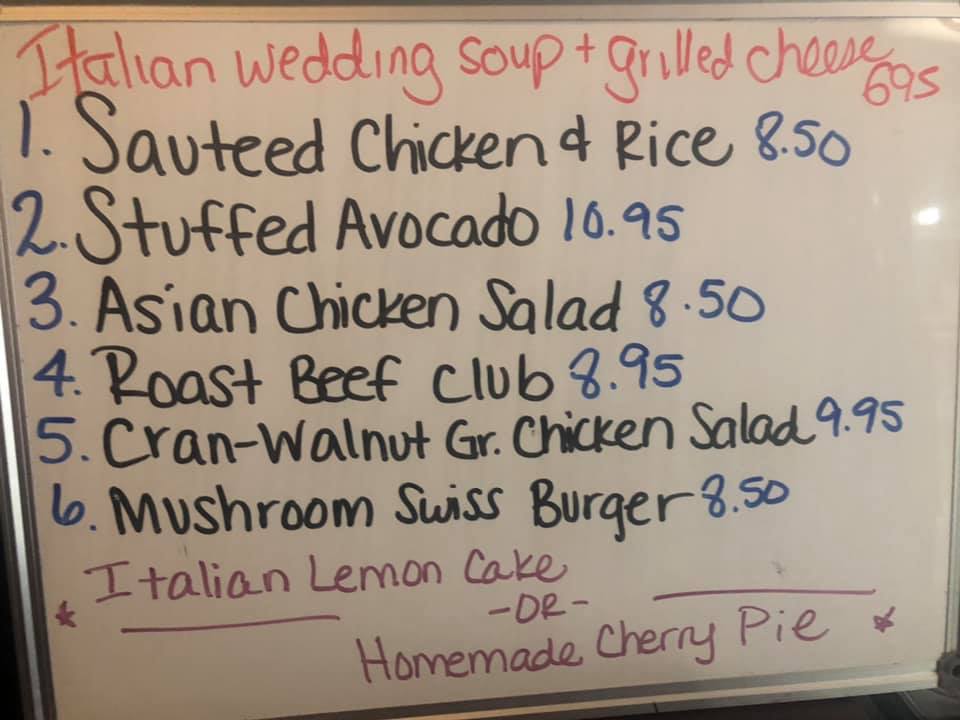 Italian wedding soup + grilled cheese 695
1. Sauteed Chicken & Rice 8.50
2. Stuffed Avocado 10.95
3. Asian Chicken Salad 8.50
4. Roast Beef Club 8.95
5. Cran-Walnut Gr. Chicken Salad 9.95
6. Mushroom Swiss Burger 8.50
Italian Lemon Cake
* -OR- *
Homemade Cherry Pie